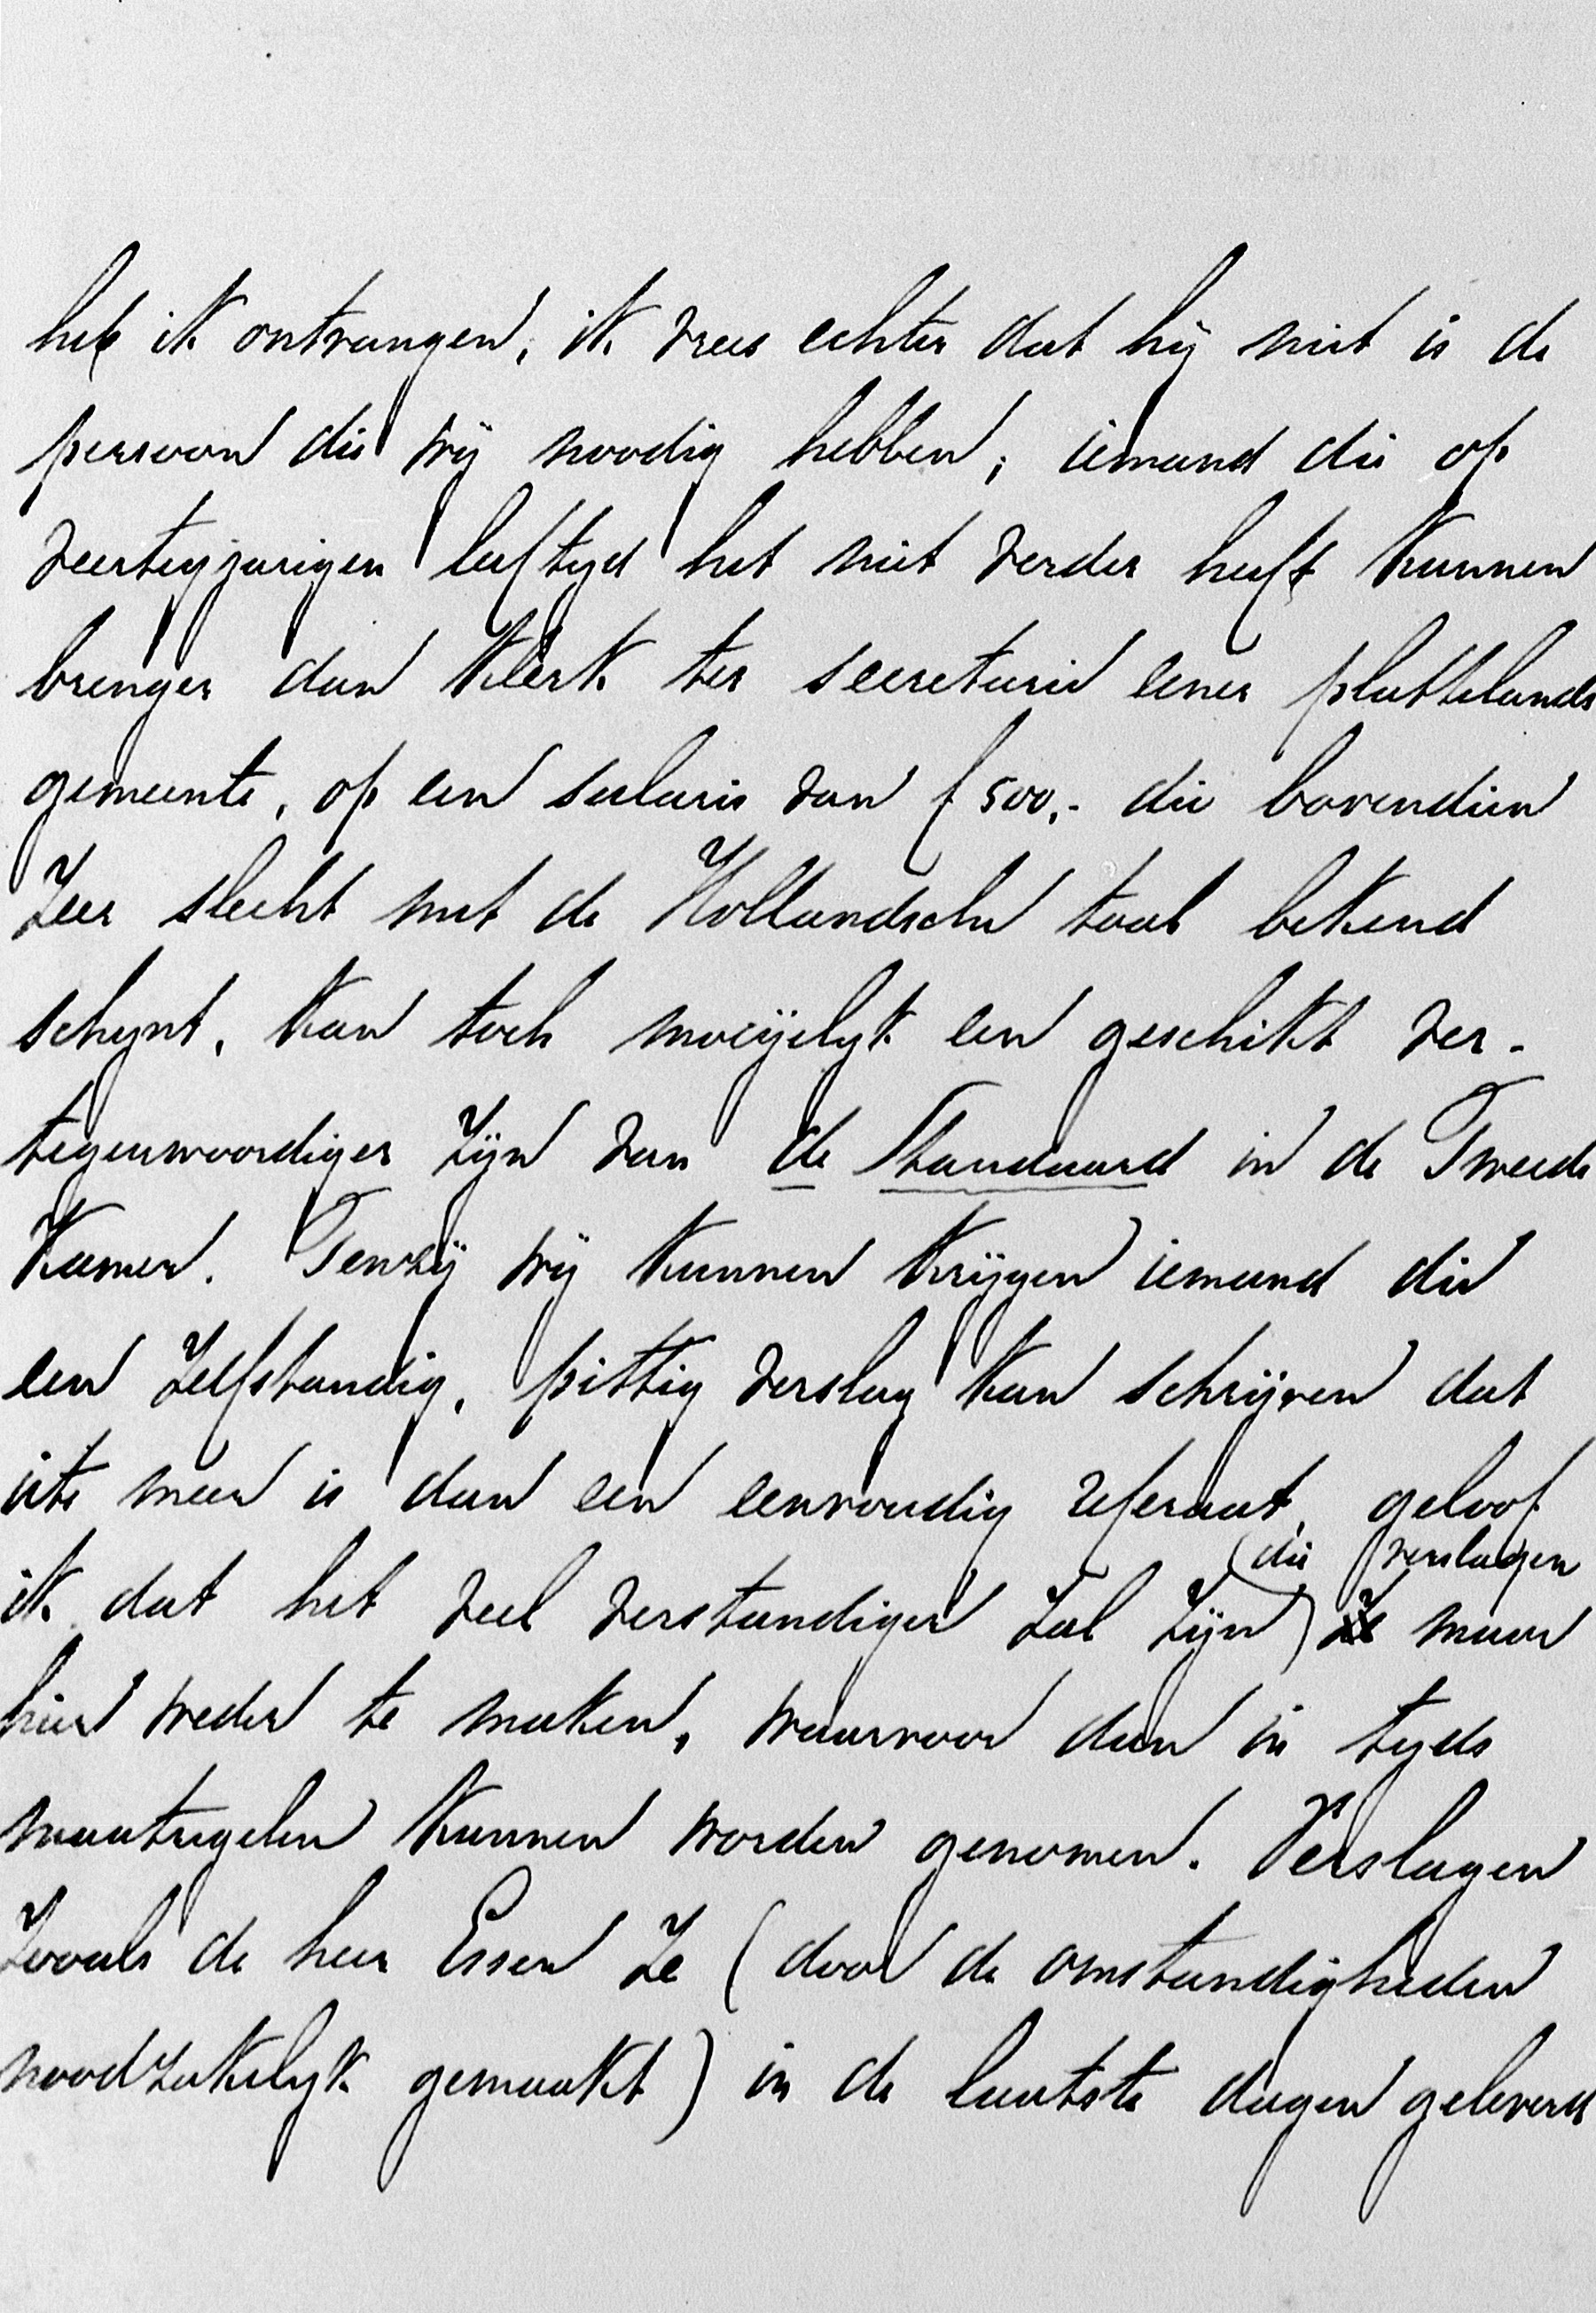 heb ik ontvangen, ik vrees echter dat hij niet is de
persoon die wij noodig hebben; iemand die op
veertigjarigen leeftijd het niet verder heeft kunnen
brengen dan klerk ter secretarie eener plattelands
gemeente, op een salaris van f 500,- die bovendien
Zeer slecht met de Hollandsche taal bekend
schijnt, kan toch moeijelijk een geschikt ver-
tegenwoordiger Zijn van de Standaard in de Tweede
Kamer. Tenzij wij kunnen krijgen iemand die
een Zelfstandig, pittig verslag kan schrijven dat
iets meer is dan een eenvoudig referaat, geloof
ik dat het veel verstandiger Zal Zijn die verslagen maar
hier weder te maken, waarvoor dan in tijds
maatregelen kunnen worden genomen. Verslagen
Zooals de heer Essen Ze (door de omstandigheden
noodzakelijk gemaakt) in de laatste dagen geleverd